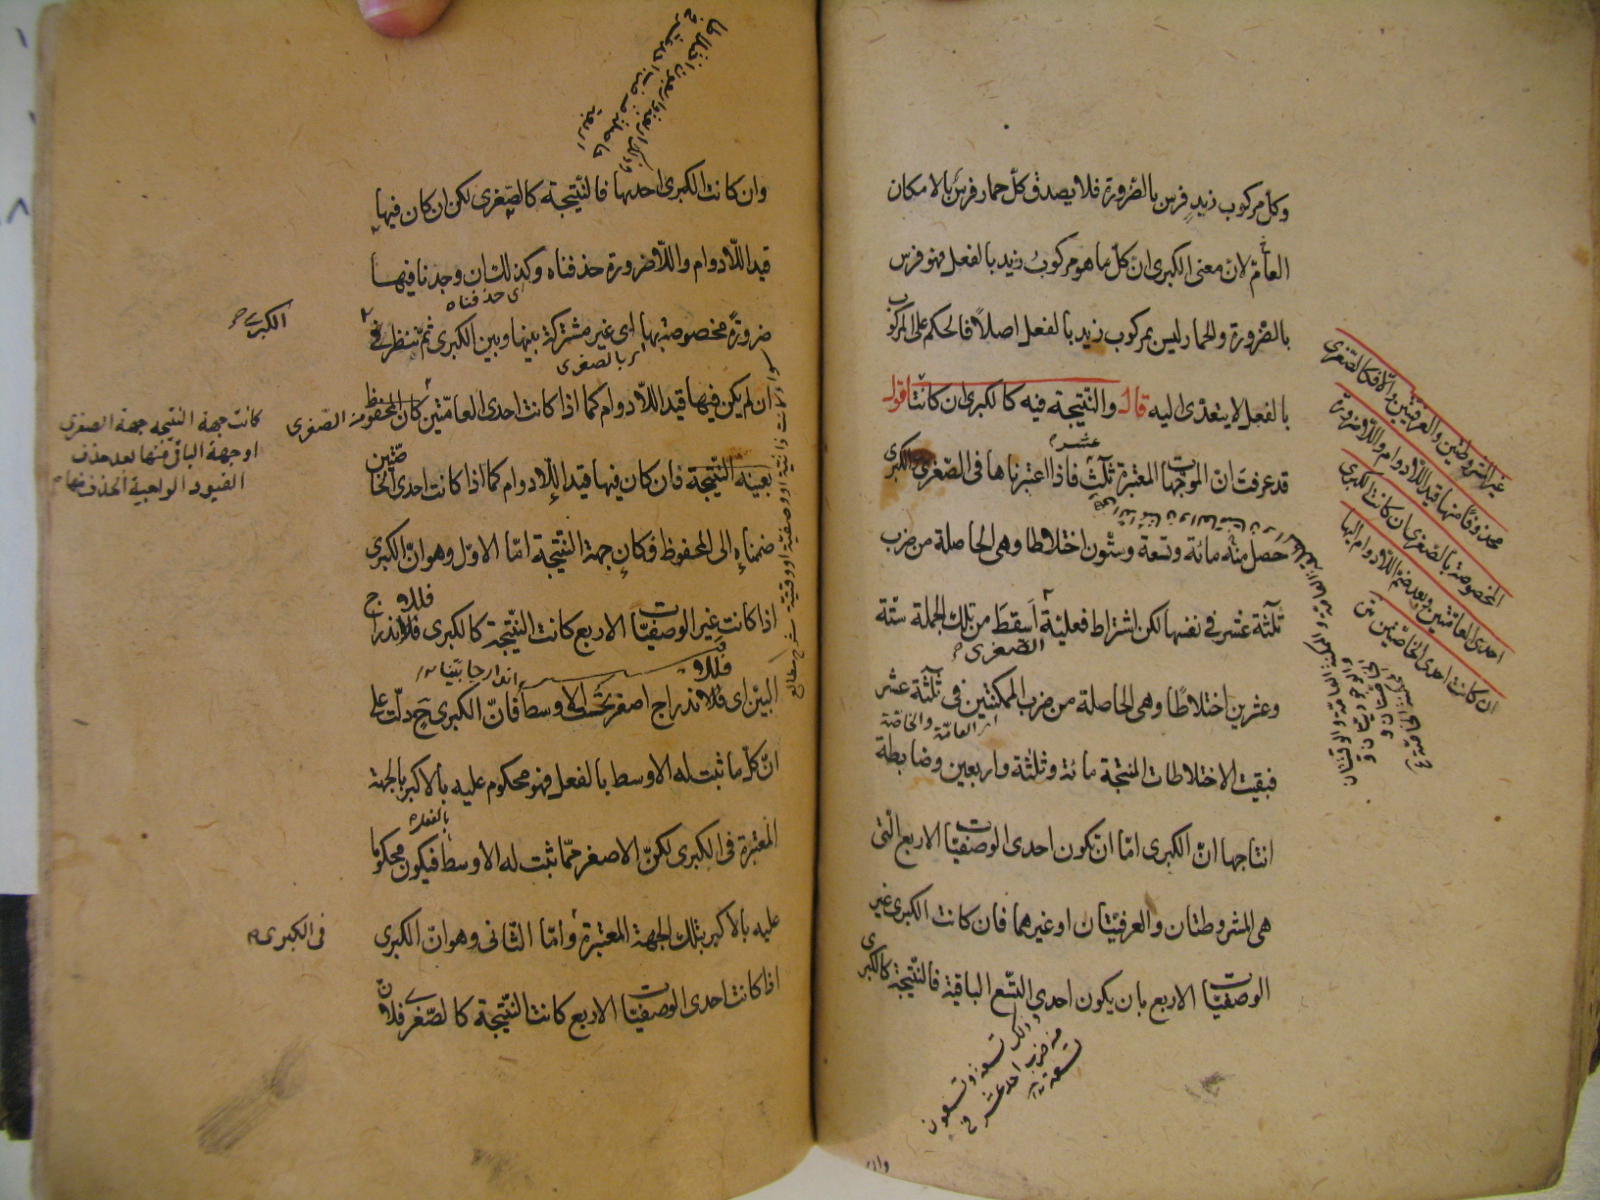 وكلّ مركوب زيدٍ فرس بالضّرورة فلا يصدق كلّ حمار فرسٌ بالامكان
العامّ لانّ معنى الكبرى انّ كلّ ما هو مركوبُ زيد بالفعل فهو فرس
بالضّرورة والحمار ليس بمركوب زيد بالفعل اصلاً فالحكم على المركوب
بالفعل لا يتعدّى اليه قال والنّتيجة فيه كالكبرى ان كانت اقول
قد عرفت انّ الموجّهات المعتبرة ثلث عشرة فاذا اعتبرناها فى الصّغرى والكبرى
حصل منه مائة وتسعة وستّون اختلاطا وهى الحاصلة من ضرب
ثلثة عشر فى نفسها لكن اشتراط فعليّة الصّغرى اسقط من تلك الجملة ستّة
وعشرين اختلاطًا وهى الحاصلة من ضرب الممكنتين فى ثلثة عشر
اى العامّة والخاصّة
فبقيت الاختلاطات المنتجة مائة وثلثة واربعين وضابطة
انتاجها انّ الكبرى امّا ان تكون احدى الوصفيّات الاربع الّتى
هى المشروطتان والعرفيّتان او غيرهما فان كانت الكبرى غير
الوصفيّات الاربع بان يكون احدى التّسع الباقية فالنّتيجة كالكبرى
وذلك تسعة وتسعون
من ضرب احد عشر فى
تسعة
غير المشروطتين والعرفيّتين والّا فكالصّغرى
محذوفًا منها قيد اللّادوام واللّاضرورة
المخصوصة بالصّغرى ان كانت الكبرى
احدى العامّتين وبعد ضمّ اللّادوام اليها
ان كانت احدى الخاصّتين متن
وان
وان كانت الكبرى احديها فالنّتيجة كالصّغرى لكن ان كان فيها
قيد اللّادوام واللّاضرورة حذفناه وكذلك ان وجدنا فيها
اى حذفناه
ضرورةً مخصوصة بها اى غير مشتركة بينها وبين الكبرى ثمّ ننظر فى الكبرى
اى بالصغرى
ان لم يكن فيها قيد اللّادوام كما اذا كانت احدى العامّتين كان المحفوظ من الصّغرى
بعينه النّتيجة فان كان فيها قيد اللّادوام كما اذا كانت احدى الخاصّتين
ضمناه الى المحفوظ فكان جهة النّتيجة امّا الاوّل وهو انّ الكبرى
اذا كانت غير الوصفيّات الاربع كانت النّتيجة كالكبرى فللاندراج
البيّن اى فللاندراج اصغر تحت الاوسط فانّ الكبرى ح دلّت على
اندراجا بيّنا
انّ كلّ ما ثبت له الاوسط بالفعل فهو محكوم عليه بالاكبر بالجهة
المعتبرة فى الكبرى لكنّ الاصغر ممّا ثبت له الاوسط بالفعل فيكون محكومًا
عليه بالاكبر بتلك الجهة المعتبرة فى الكبرى وامّا الثّانى وهو انّ الكبرى
اذا كانت احدى الوصفيّات الاربع كانت النّتيجة كالصّغرى فلانّ
كانت جهة النتيجة جهة الصغرى
او جهة الباقى منها بعد حذف
القيود الواجبة الحذف منها